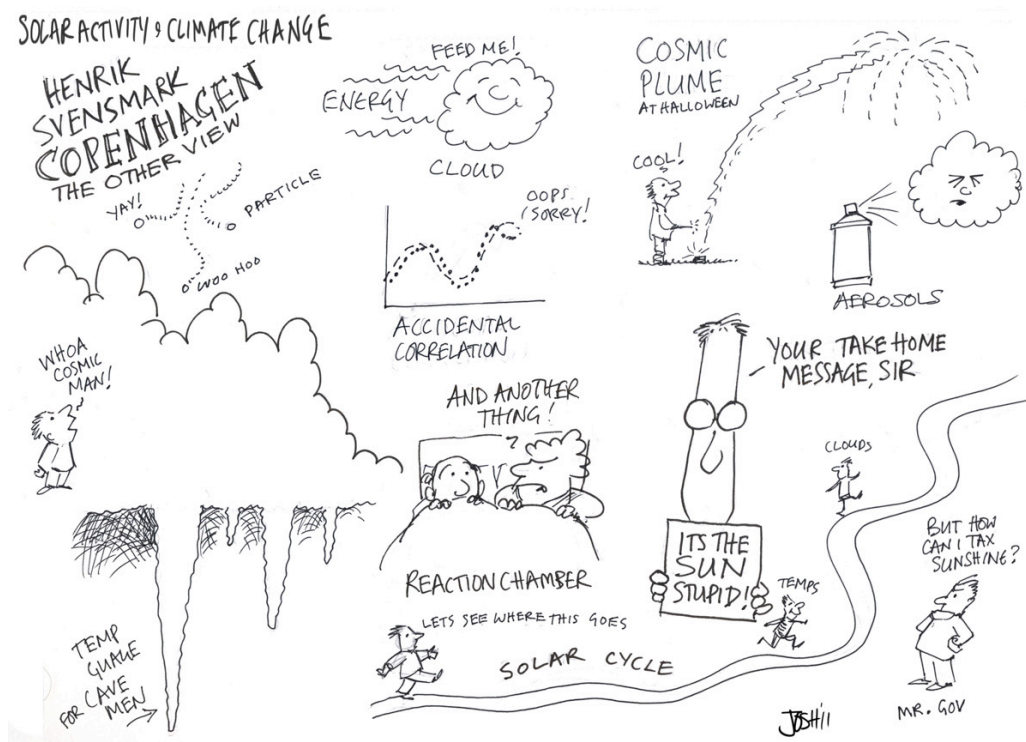 SOLAR ACTIVITY & CLIMATE CHANGE
HENRIK
SVENSMARK
COPENHAGEN
THE OTHER VIEW
YAY!
PARTICLE
WOO HOO
WHOA
COSMIC
MAN!
TEMP
GUAGE
FOR CAVE
MEN
FEED ME!
ENERGY
CLOUD
OOPS
SORRY!
ACCIDENTAL
CORRELATION
AND ANOTHER
THING!
REACTION CHAMBER
LETS SEE WHERE THIS GOES
SOLAR CYCLE
COSMIC
PLUME
AT HALLOWEEN
COOL!
AEROSOLS
YOUR TAKE HOME
MESSAGE, SIR
ITS THE
SUN
STUPID!
TEMPS
CLOUDS
BUT HOW
CAN I TAX
SUNSHINE?
MR. GOV
JOSH11